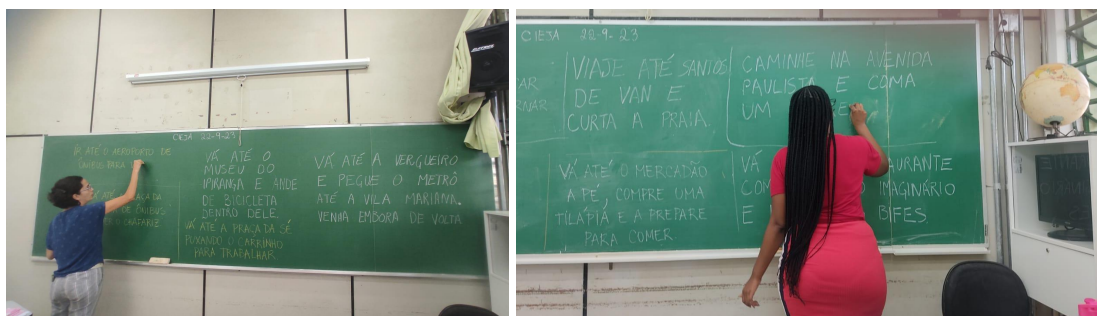 CIEJA 22-9-23
VÁ ATÉ O AEROPORTO DE
ÔNIBUS PARA
ATÉ A PRAÇA DA
DE ÔNIBUS
O CHAFARIZ
VÁ ATÉ O
MUSEU DO
IPIRANGA E ANDE
DE BICICLETA
DENTRO DELE.
VÁ ATÉ A PRAÇA DA SÉ
PUXANDO O CARRINHO
PARA TRABALHAR
VÁ ATÉ A VERGUEIRO
E PEGUE O METRÔ
ATÉ A VILA MARIANA.
VENHA EMBORA DE VOLTA
CIEJA 22-9-23
VIAJE ATÉ SANTOS
DE VAN E
CURTA A PRAIA.
CAMINHE NA AVENIDA
PAULISTA E COMA
UM
VÁ ATÉ O MERCADÃO
A PÉ, COMPRE UMA
TILÁPIA E A PREPARE
PARA COMER.
VÁ AURANTE
COM IMAGINÁRIO
E BIFES.